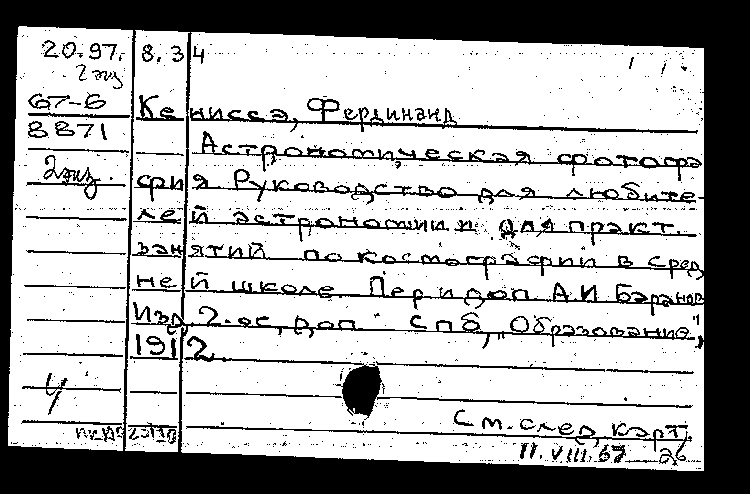 20.97. 8.34
2 экз
67-6
8871
2 экз.
Кениссэ, Фердинанд
Астрономическая фотогра
фия Руководство для любите-
лей астрономии и для практ.
занятий по космографии в сред
ней школе. Пер и доп А.И Баранов
Изд 2-ое, доп. Спб, "Образование",
1912.
См. след, карт.
11.VIII.67 26